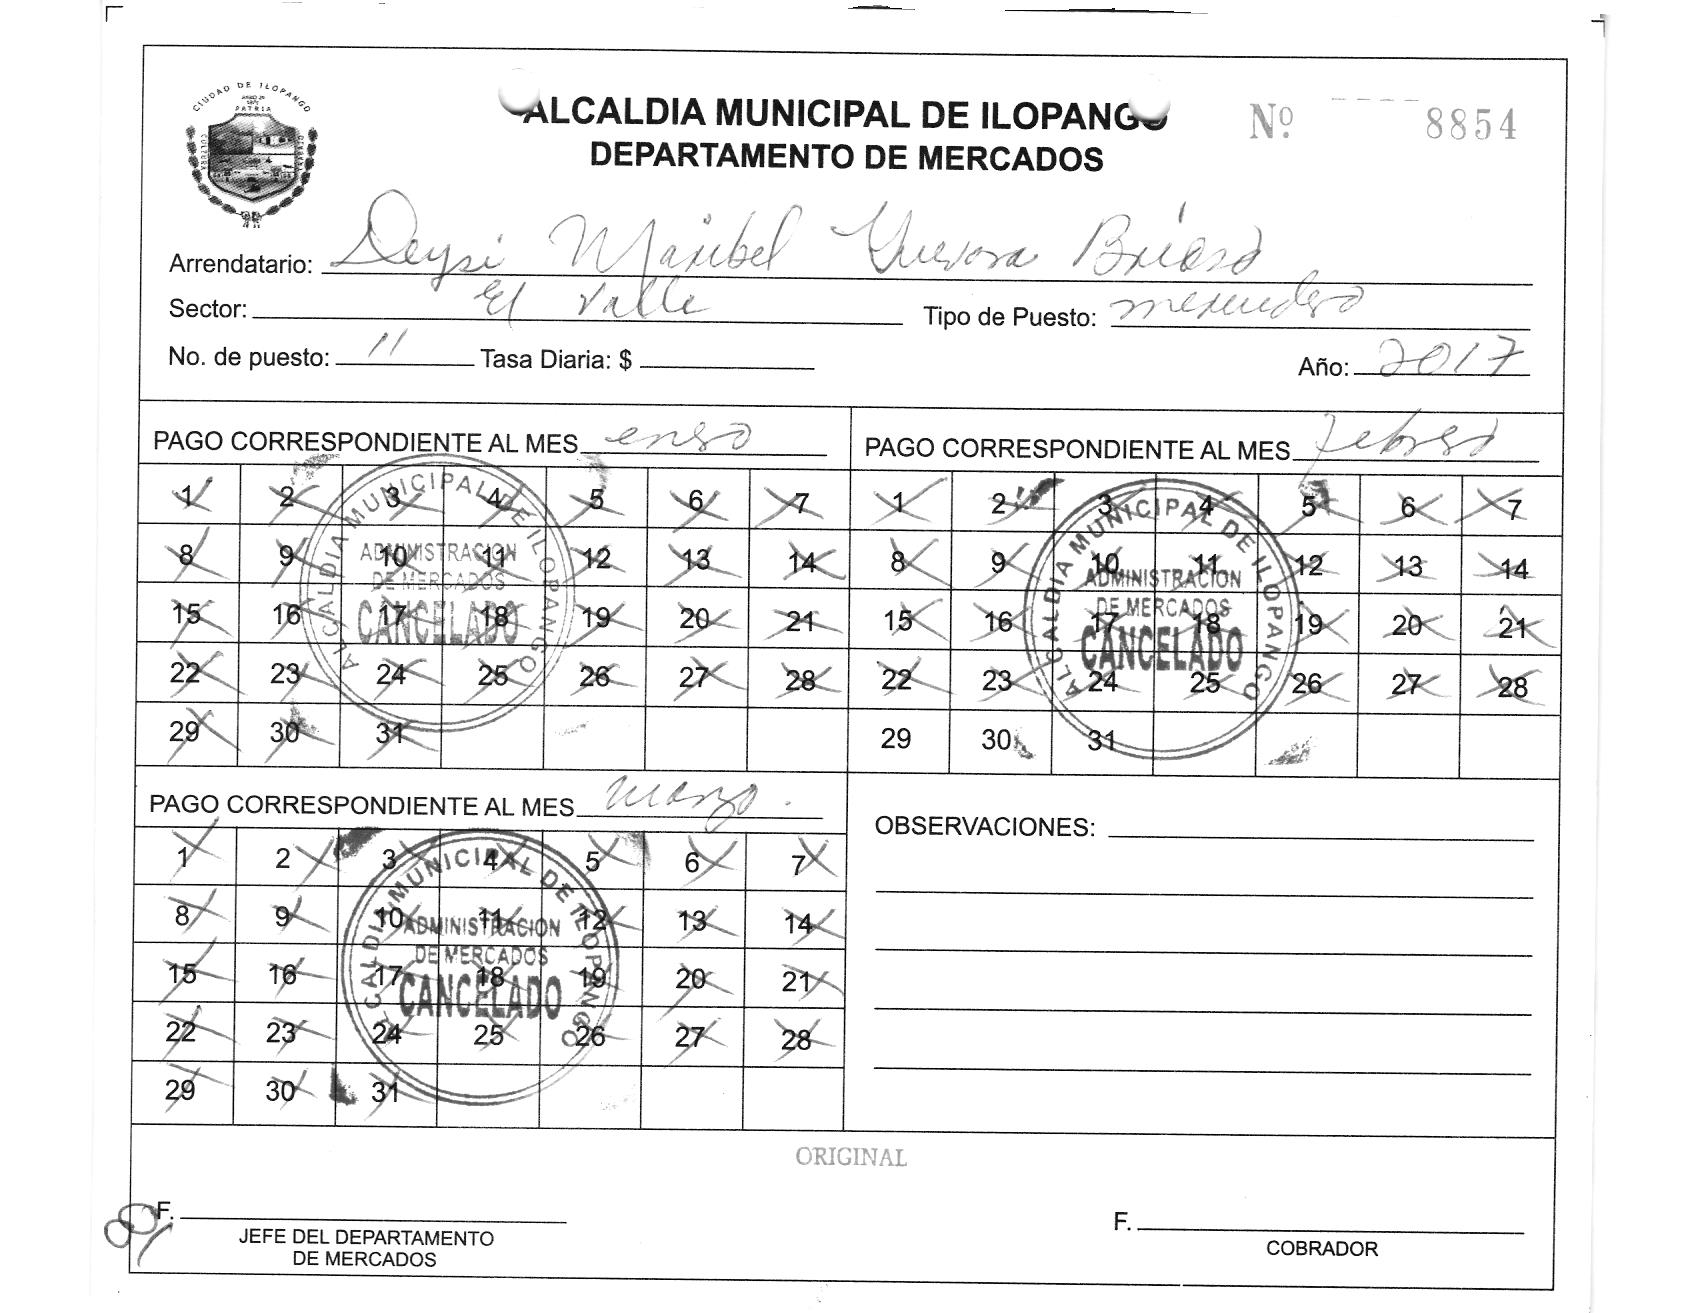 CIUDAD DE ILOPANGO
PATRIA
CULTURA
ALCALDIA MUNICIPAL DE ILOPANGO
DEPARTAMENTO DE MERCADOS
Nº 8854
Arrendatario: Deysi Maribel Guevara
Sector: El Valle Tipo de Puesto: merendero
No. de puesto: 11 Tasa Diaria: $ Año: 2017
PAGO CORRESPONDIENTE AL MES enero
1 2 3 4 5 6 7
8 9 10 11 12 13 14
15 16 17 18 19 20 21
22 23 24 25 26 27 28
29 30 31
ALCALDIA MUNICIPAL DE ILOPANGO
ADMINISTRACION
DE MERCADOS
CANCELADO
PAGO CORRESPONDIENTE AL MES febrero
1 2 3 4 5 6 7
8 9 10 11 12 13 14
15 16 17 18 19 20 21
22 23 24 25 26 27 28
29 30 31
ALCALDIA MUNICIPAL DE ILOPANGO
ADMINISTRACION
DE MERCADOS
CANCELADO
PAGO CORRESPONDIENTE AL MES marzo.
1 2 3 4 5 6 7
8 9 10 11 12 13 14
15 16 17 18 19 20 21
22 23 24 25 26 27 28
29 30 31
ALCALDIA MUNICIPAL DE ILOPANGO
ADMINISTRACION
DE MERCADOS
CANCELADO
OBSERVACIONES:
ORIGINAL
F.
JEFE DEL DEPARTAMENTO
DE MERCADOS
F.
COBRADOR